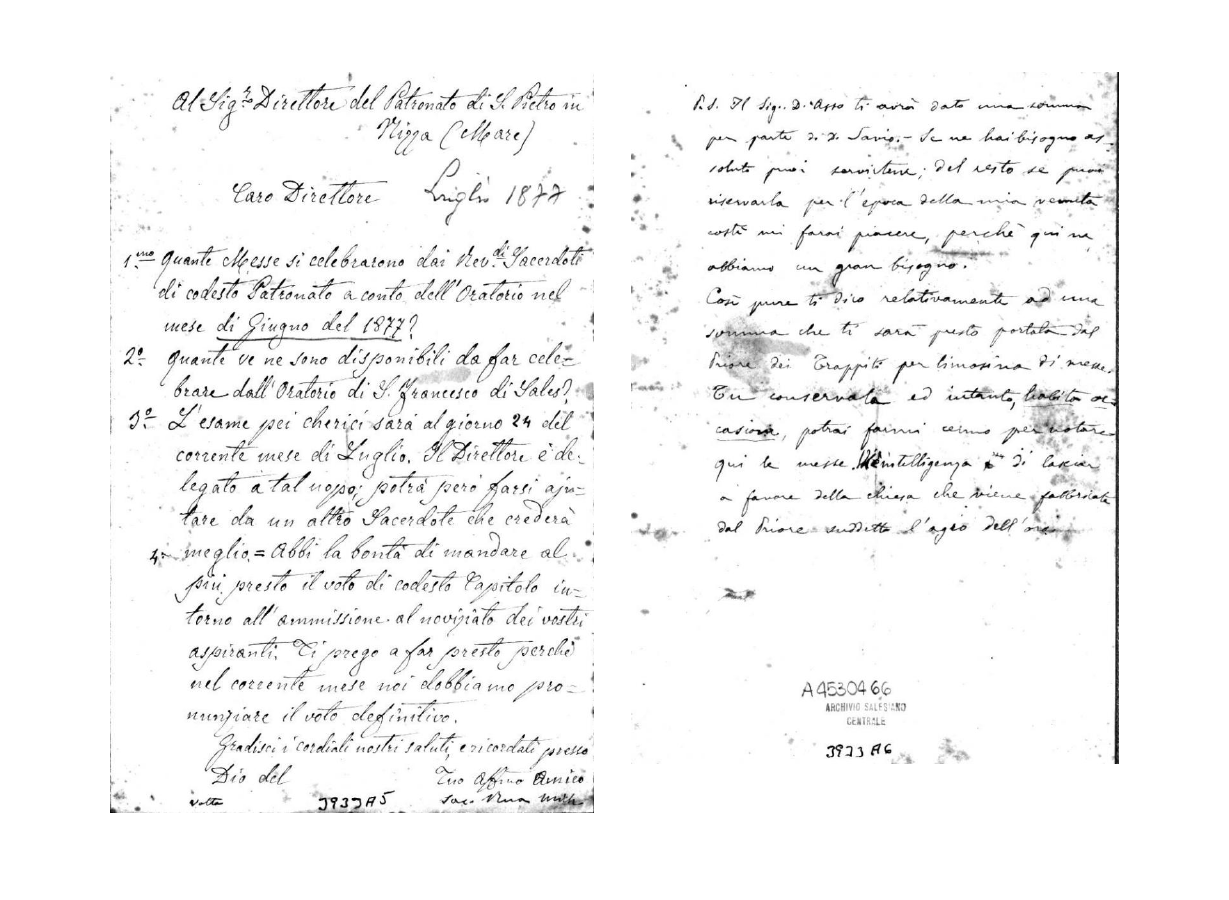 Al Sig.r Direttore del Patronato di S. Pietro in
Nizza (Mare)
Caro Direttore Luglio 1877
1.mo Quante Messe si celebrarono dai Rev.di Sacerdoti
di codesto Patronato a conto dell'Oratorio nel
mese di Giugno del 1877?
2.o Quante ve ne sono disponibili da far cele=
brare dall'Oratorio di S. Francesco di Sales?
3.o L'esame pei cherici sarà al giorno 24 del
corrente mese di Luglio. Il Direttore è de-
legato a tal uopo; potrà però farsi aju=
tare da un altro Sacerdote che crederà
4.o meglio = Abbi la bontà di mandare al
più presto il voto di codesto Capitolo in=
torno all'ammissione al noviziato dei vostri
aspiranti. Ti prego a far presto perchè
nel corrente mese noi dobbiamo pro=
nunziare il voto definitivo.
Gradisci i cordiali nostri saluti, e ricordati presso
Dio del Tuo Affmo Amico
volta 3933A5 Sac. Rua Mich.
P.S. Il Sig. D. Asso ti avrà dato una somma
per parte di D. Savio. - Se ne hai bisogno as-
soluto puoi servirtene; del resto se puoi
riservarla per l'epoca della mia venuta
costì mi farai piacere, perchè qui ne
abbiamo un gran bisogno.
Così pure ti dico relativamente ad una
somma che ti sarà presto portata dal
Priore dei Trappisti per limosina di messe.
Tu conservala ed intanto, habita oc-
casione, potrai farmi cenno per notare
qui le messe. intelligenza di lasciar
a favore della chiesa che viene fabbricata
dal Priore suddetto l'agio dell'oro
A4530466
ARCHIVIO SALESIANO
CENTRALE
3933A6